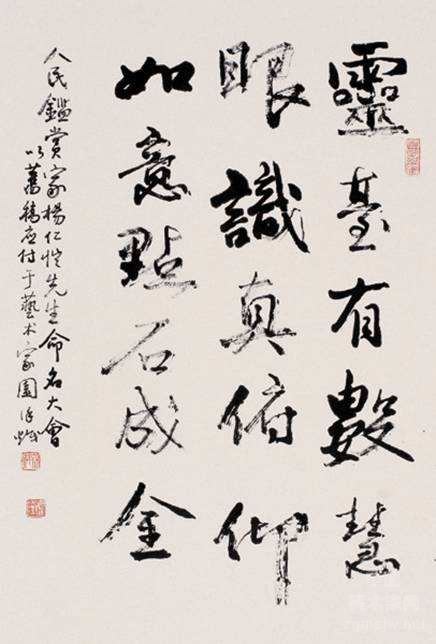 靈臺有數慧
眼識真俯仰
如意點石成金
人民鑑賞家楊仁愷先生命名大會
以舊稿应付于藝术家園